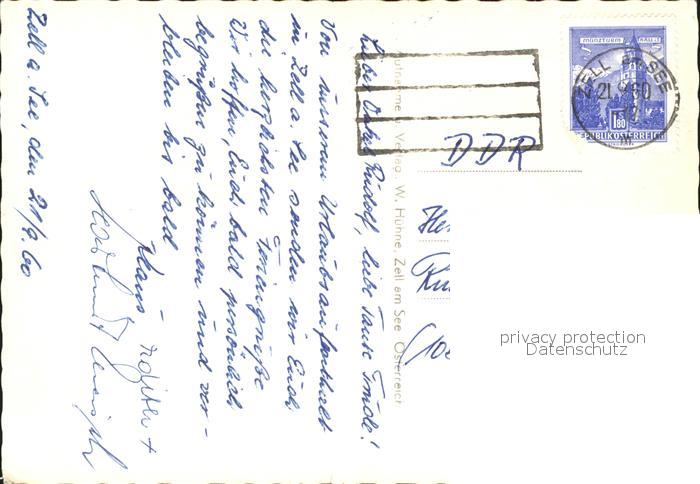 Zell a. See, den 21/9.60
Lieber Onkel Rudolf, liebe Tante Trude!
Von unserem Urlaubsaufenthalt
in Zell a. See senden wir Euch
die herzlichsten Feriengrüße
Wir hoffen, Euch bald persönlich
begrüßen zu können und ver-
bleiben bis bald
Klaus-
Aufnahme u. Verlag W. Hühne, Zell am See Österreich
MÜNZTURM
HALL
1.80
REPUBLIK ÖSTERREICH
ZELL am SEE
21.9.60
DDR
privacy protection
Datenschutz